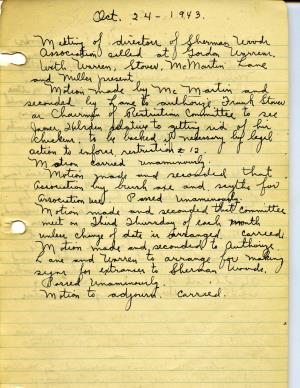 Oct. 24-1943.
Meeting of directors of Sherman Woods
Association called at Gordon Warrens.
With Warren, Stover, McMartin Lane
and Miller present.
Motion made by McMartin and
seconded by Lane to authorize Frank Stover
as Chairman of Restriction Committee to see
James relative to getting rid of his
chickens, to be backed if necessary by legal
action to inforce restriction # 12.
Motion carried unanimously.
Motion made and seconded that
Association buy brush axe and scythe for
Association use. Passed Unanimously.
Motion made and seconded that committee
meet on Third Thursday of each month
unless change of date is arranged. Carried.
Motion made and seconded to Authorize
Lane and Warren to arrange for making
signs for entrances to Sherman Woods.
Passed Unanimously.
Motion to adjourn. Carried.